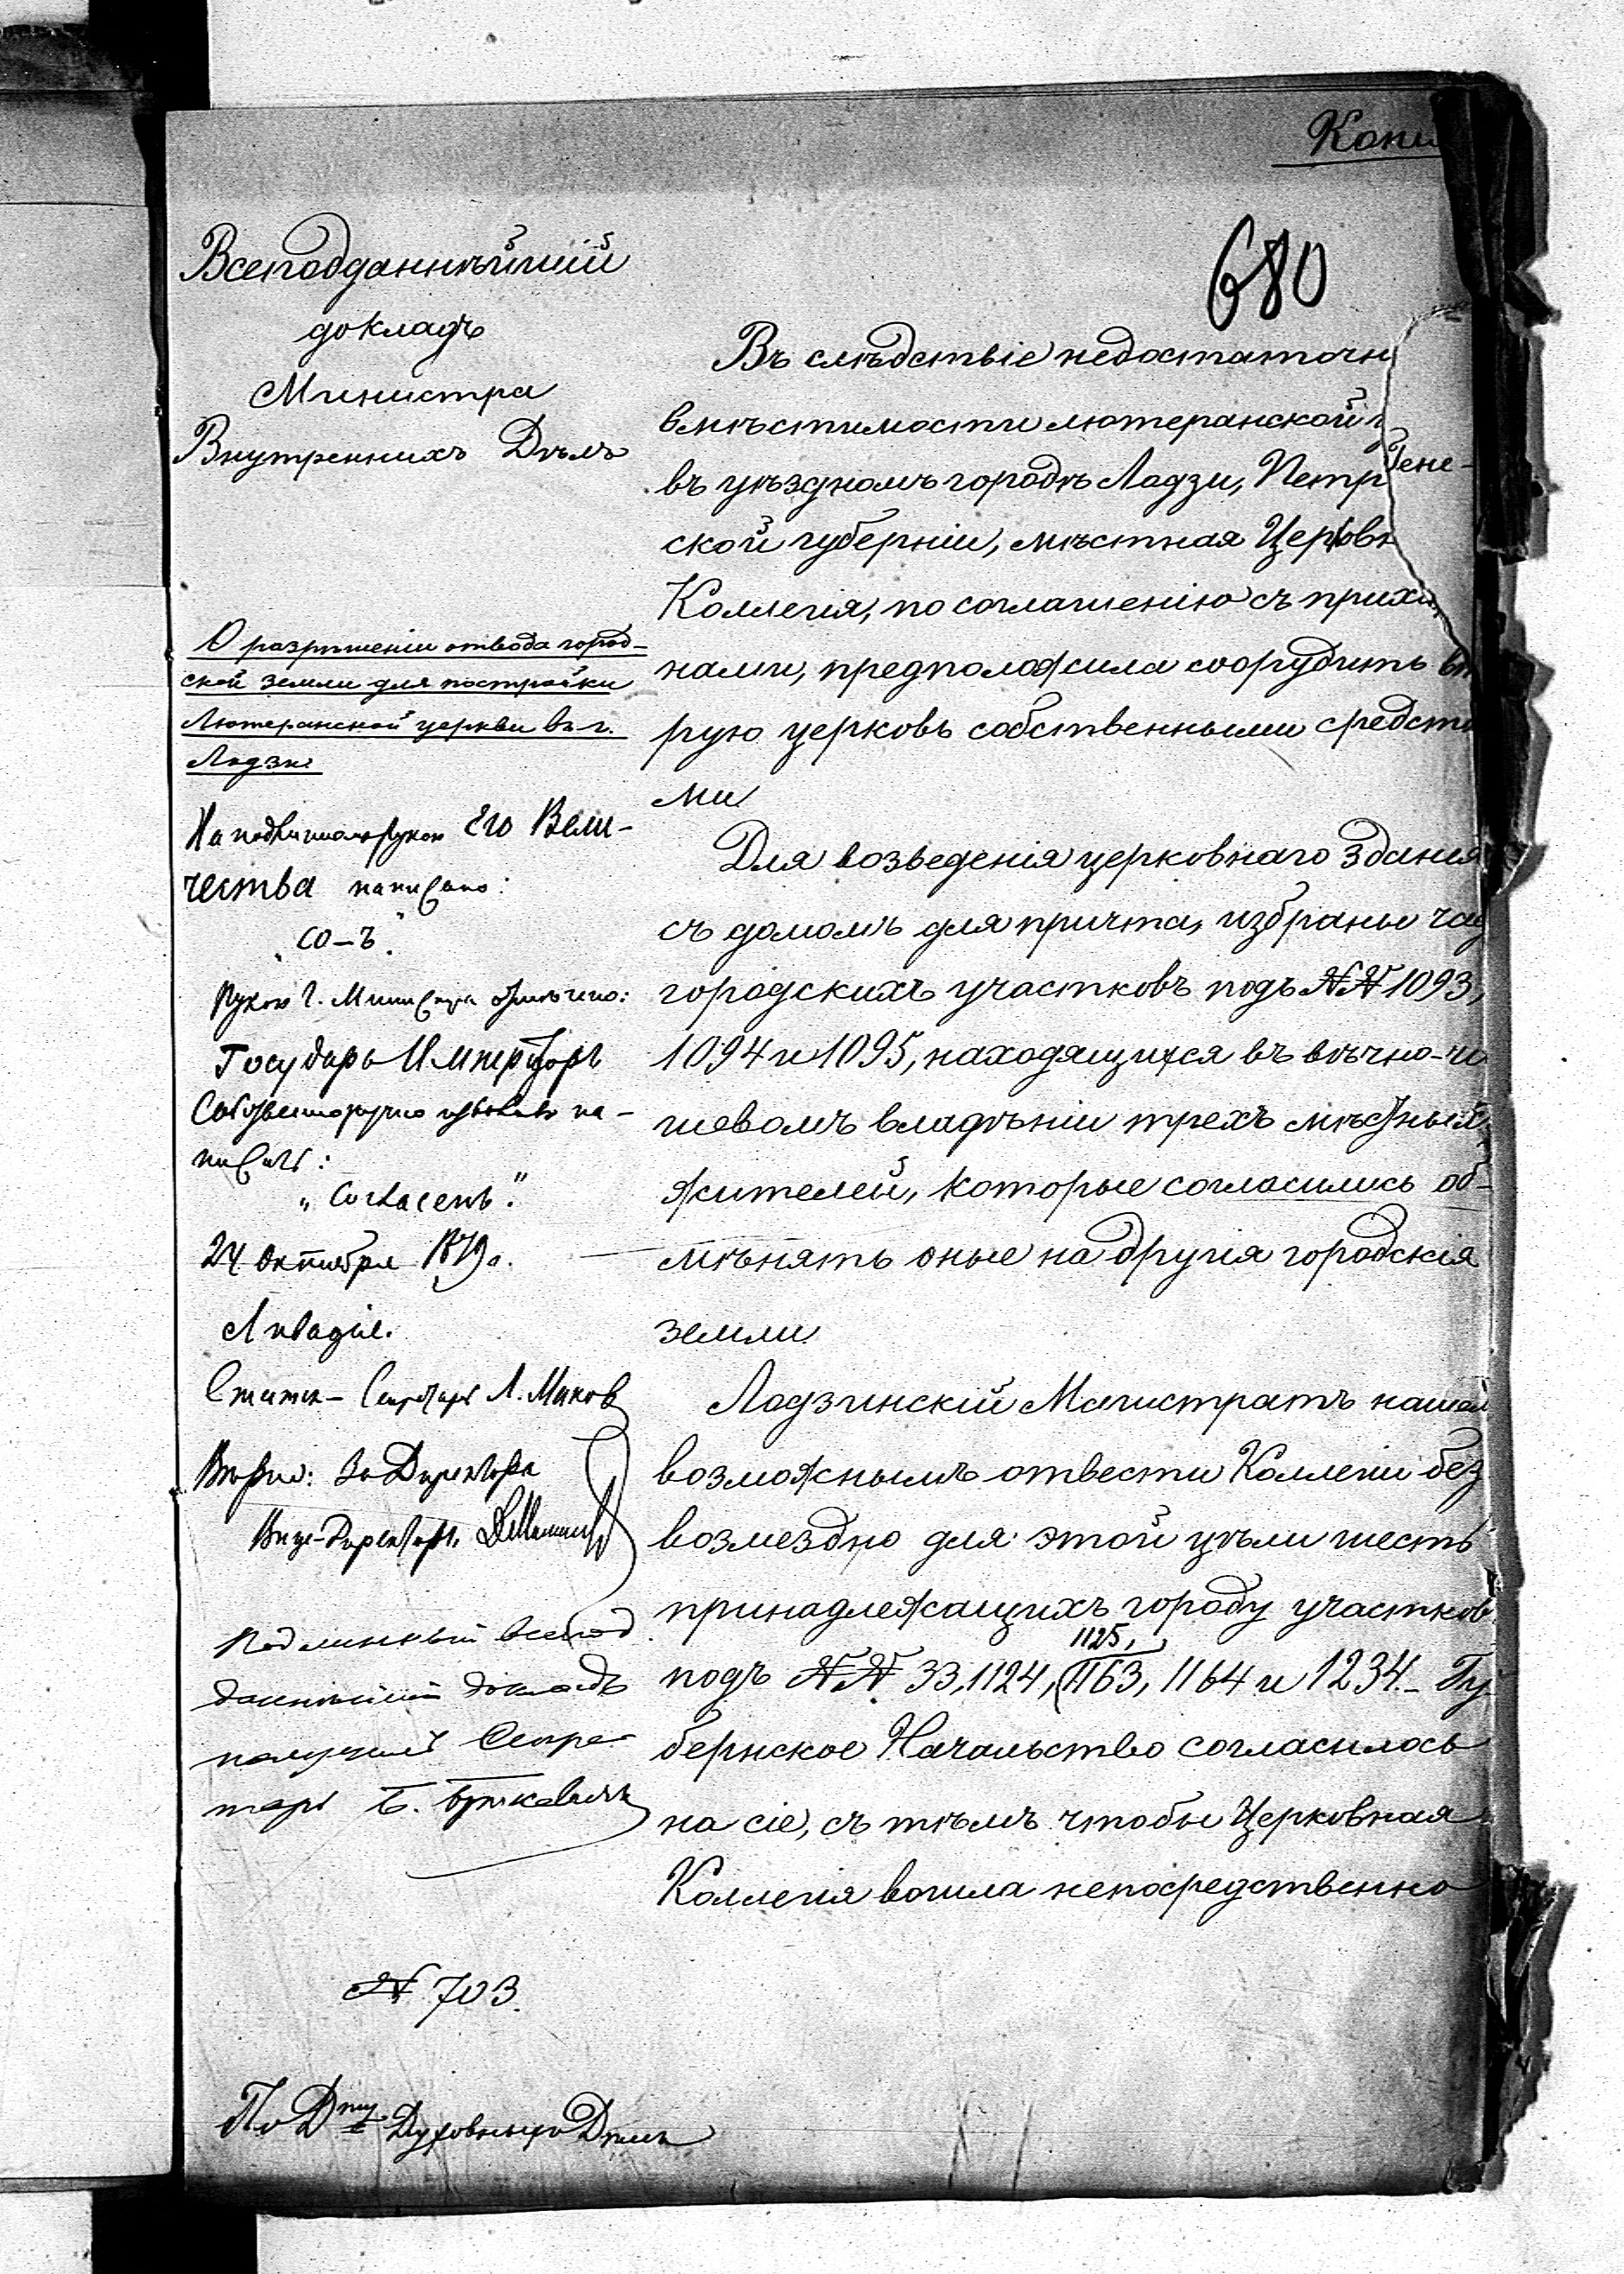 Копі
680
Всеподданнѣйшій
докладъ
Министра
Внутреннихъ Дѣлъ
О разрѣшеніи отвода город-
ской земли для постройки
Лютеранской церкви въ г.
Лодзи.
На подлинномъ рукою Его Вели-
чества написано:
„СО-Ъ“.
Рукою Г. Министра отмѣчено:
Государь Императоръ
Собственноручно изволилъ на-
писать:
„Согласенъ“.
24 Октября 1879 г.
Ливадія.
Статсъ-Секретарь Л. Маковъ
Вѣрно: За Директора
Вице-Директоръ
Подлинный всепод
даннѣйшій докладъ
получилъ Секре-
тарь Б.
№ 703.
По Дту Духовныхъ Дѣлъ
Въ слѣдствіе недостаточн
вмѣстимости лютеранской
въ уѣздномъ городѣ Лодзи, Петр
ской губерніи, мѣстная Церковн
Коллегія, по соглашенію съ прихо
нами, предположила соорудить вт
рую церковь собственными средств
ми
Для возведенія церковнаго зданія
съ домомъ для причта, избраны час
городскихъ участковъ подъ №№ 1093,
1094 и 1095, находящихся въ вѣчно-чи
шевомъ владѣніи трехъ мѣстныхъ
жителей, которые согласились об-
мѣнять оные на другія городскія
земли.
Лодзинскій Магистратъ нашел
возможнымъ отвести Коллегіи без
возмездно для этой цѣли шесть
принадлежащихъ городу участков
1125,
подъ №№ 33, 1124, 1163, 1164 и 1234. Гу
бернское Начальство согласилось
на сіе, съ тѣмъ чтобы Церковная
Коллегія вошла непосредственно